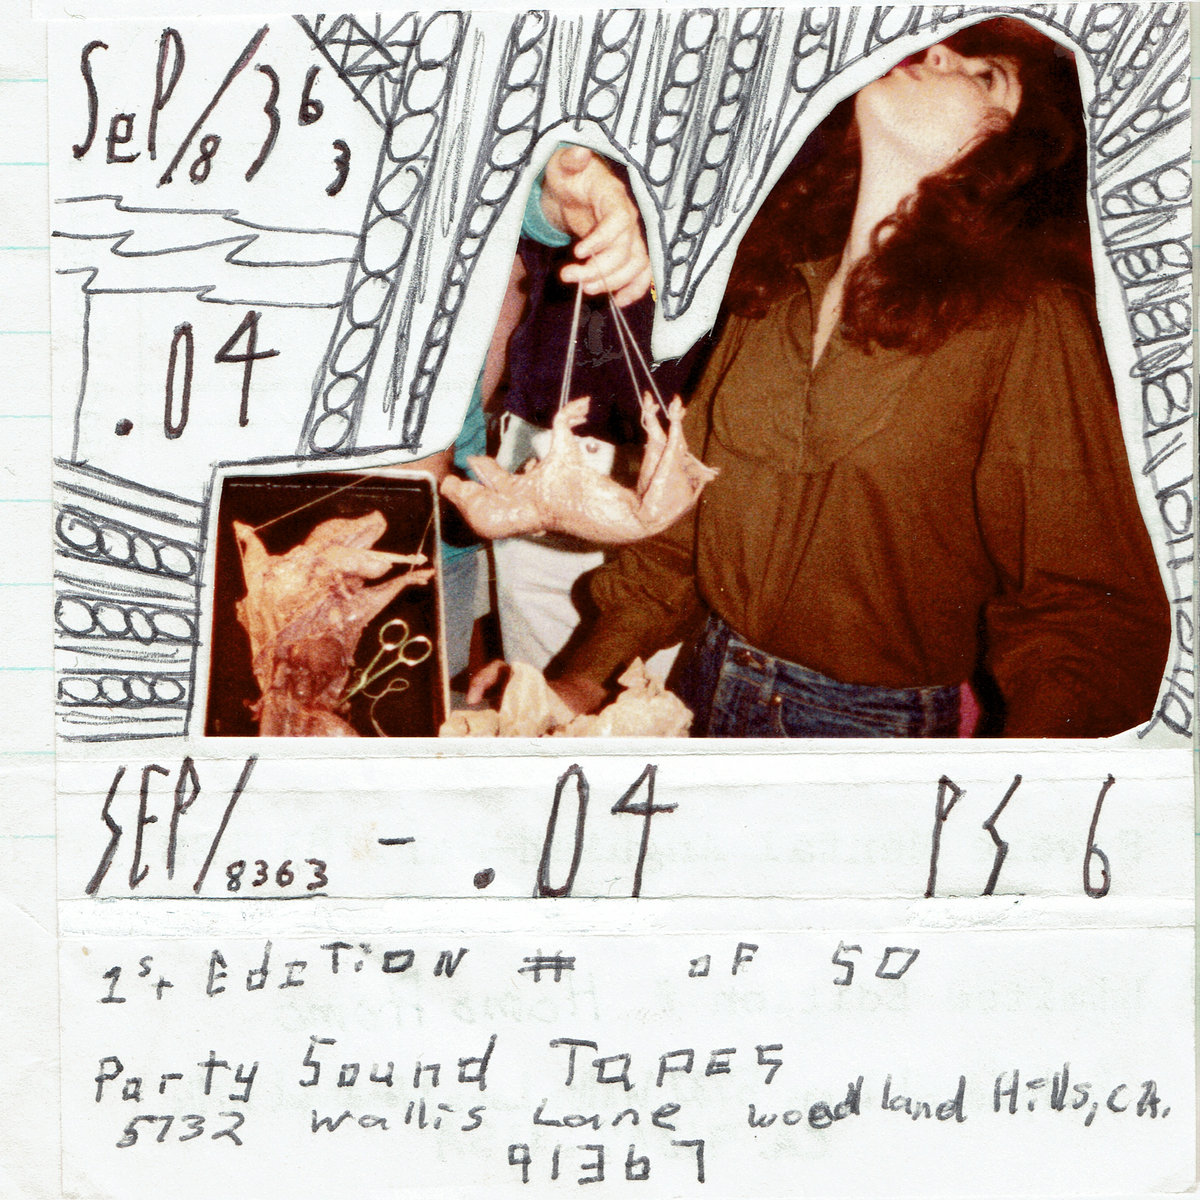 SeP/8363
.04
SEP/8363 - .04 PS6
1st EdiTiON # oF 50
Party Sound TAPES
5732 Wallis Lane Woodland Hills, CA.
91367